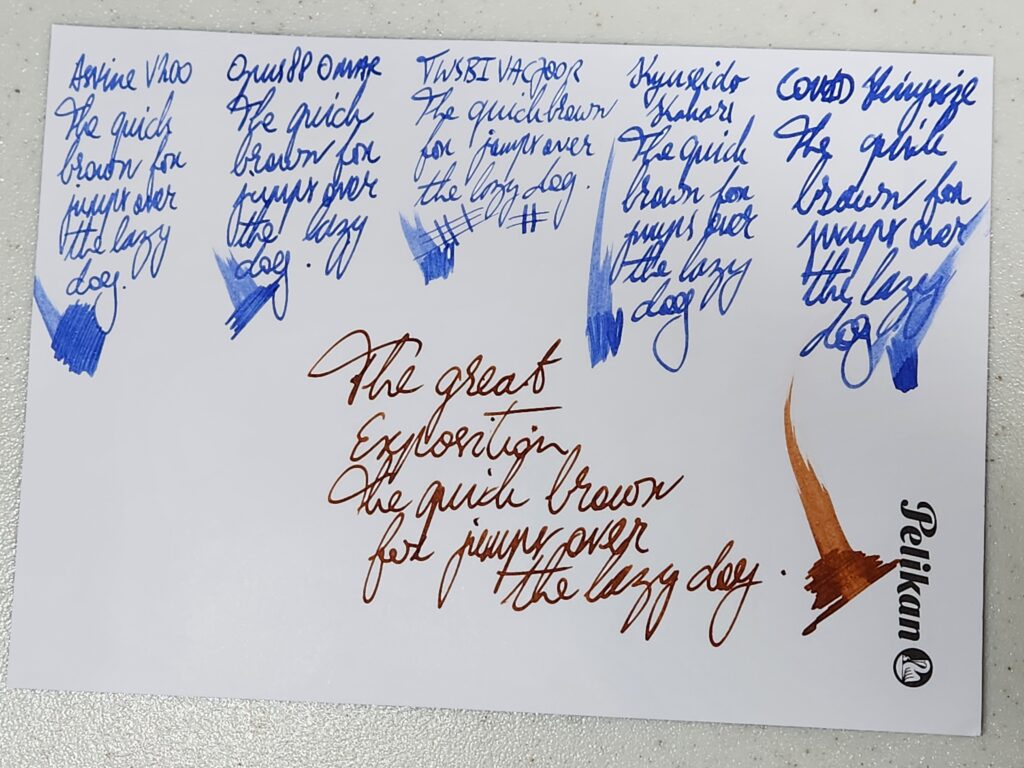 Asvine V200
The quick
brown fox
jumps over
the lazy
dog.
Opus 88 OMAR
The quick
brown fox
jumps over
the lazy
dog.
TWSBI VAC700R
The quick brown
fox jumps over
the lazy dog.
# #
Kyuseido
Kakari
The quick
brown fox
jumps over
the lazy
dog
CONID Kingsize
The quick
brown fox
jumps over
the lazy
dog.
The great
Exposition
The quick brown
fox jumps over
the lazy dog.
Pelikan